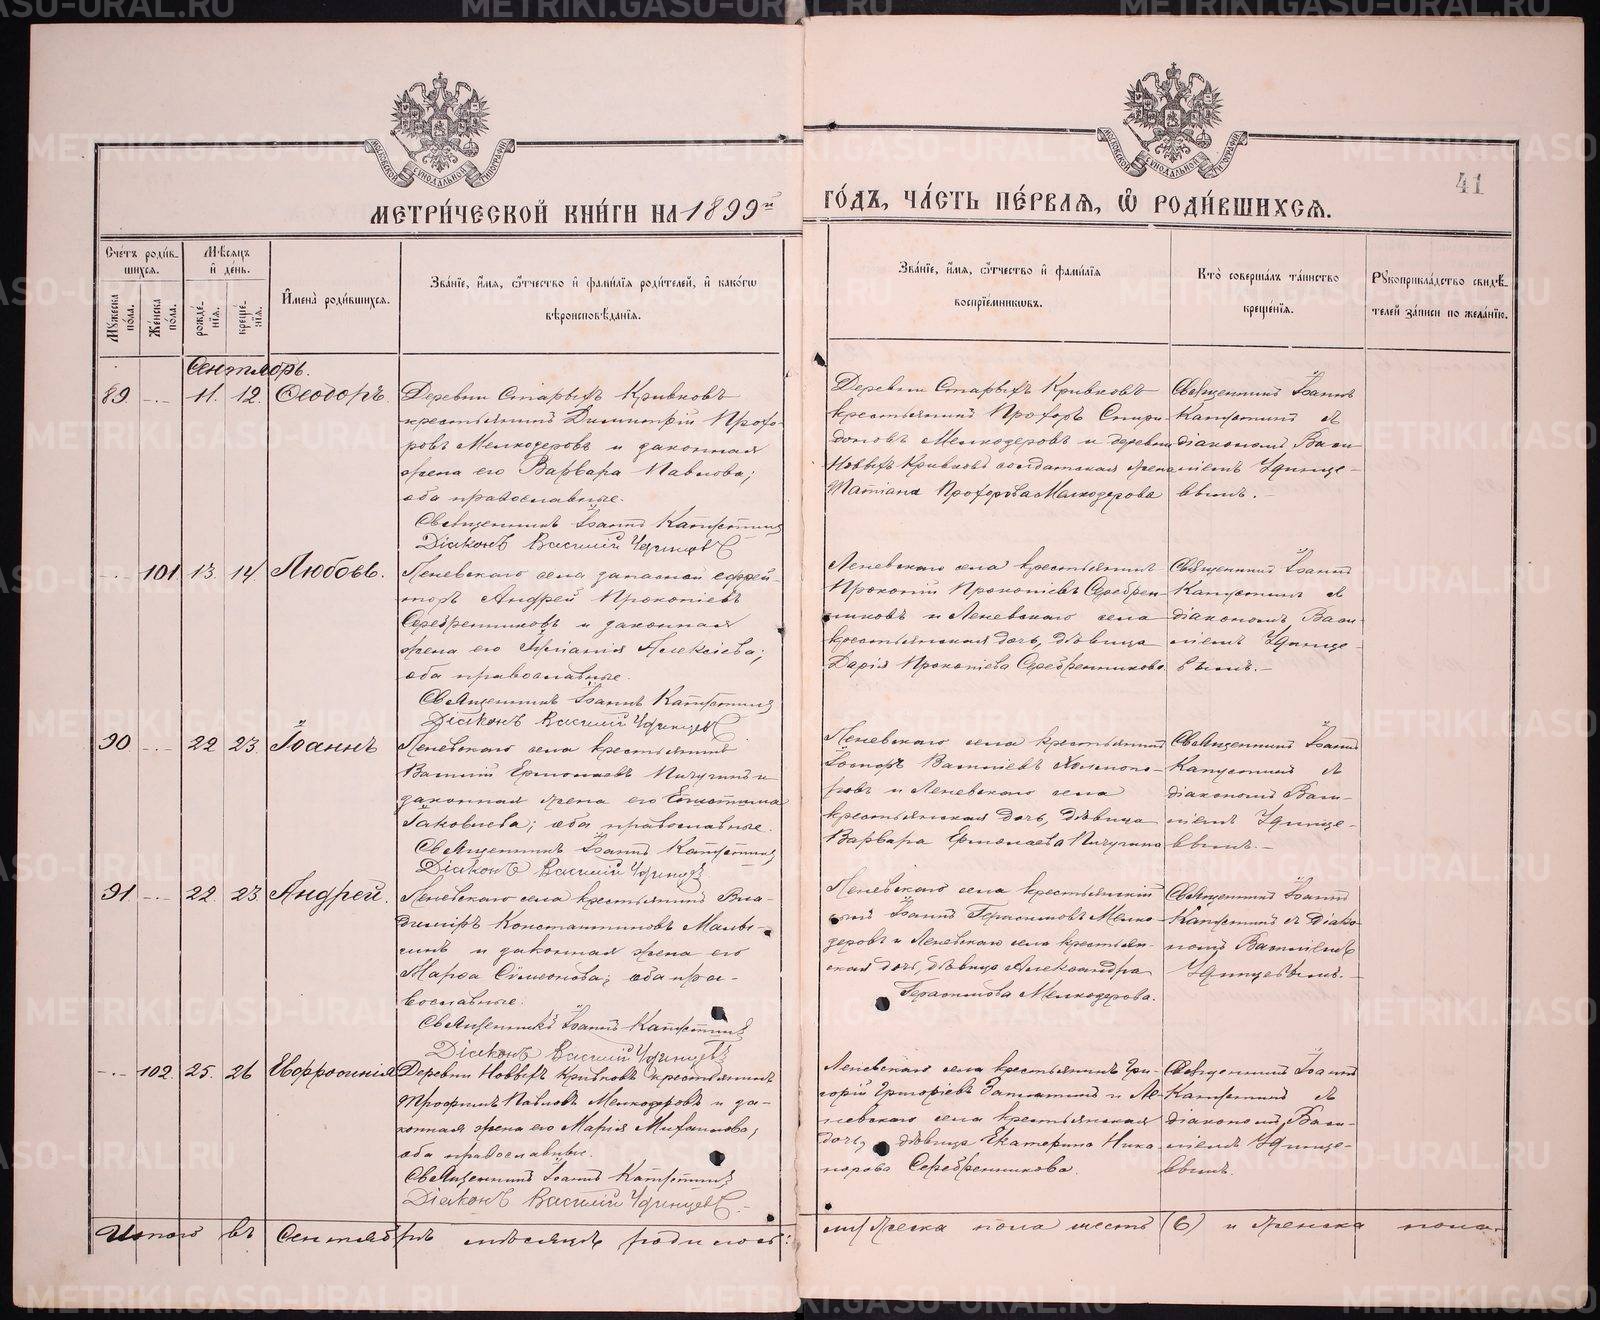 МЕТРИ́ЧЕСКОЙ КНИ́ГИ НА 1899й
ГО́ДЪ, ЧА́СТЬ ПЕ́РВАЯ, Ѽ РОДИ́ВШИХСЯ.
41
Сче́тъ роди́в-
шихся.
Мѣ́сяцъ
и҆ де́нь.
Му́жеска по́ла.
Же́нска по́ла.
рожде́-
нїя.
креще́-
нїя.
И҆мена̀ роди́вшихся.
Зва́нїе, и҆́мя, ѻ҆́тчество и҆ фами́лїя роди́телей, и҆ како́гѡ
вѣроисповѣ́данїя.
Зва́нїе, и҆́мя, ѻ҆́тчество и҆ фами́лїя
воспрїе́мниковъ.
Кто̀ соверша́лъ та́инство
креще́нїя.
Рꙋкоприкла́дство свидѣ́-
телей за́писи по жела́нїю.
Сентябрь.
89. -.- 11. 12. Ѳеодоръ.
Деревни Старыхъ Кривковъ
крестьянинъ Димитрій Прохо-
ровъ Мелкозеровъ и законная
жена его Варвара Павлова;
оба православные.
Священникъ Іоаннъ Капустинъ
Діаконъ Василій Удинцевъ
Деревни Старыхъ Кривковъ
крестьянинъ Прохоръ Спири-
доновъ Мелкозеровъ и деревни
Новыхъ Кривковъ солдатская жена
Татіана Прохорова Мелкозерова
Священникъ Іоаннъ
Капустинъ съ
діакономъ Васи-
ліемъ Удинце-
вымъ.-
-.- 101. 13. 14. Любовь.
Леневскаго села запасной ефрей-
торъ Андрей Прокопіевъ
Серебренниковъ и законная
жена его Алексіева;
оба православные.
Священникъ Іоаннъ Капустинъ
Діаконъ Василій Удинцевъ
Леневскаго села крестьянинъ
Прокопій Прокопіевъ Серебрен-
никовъ и Леневскаго села
крестьянская дочь, дѣвица
Дарія Прокопіева Серебренникова.
Священникъ Іоаннъ
Капустинъ съ
діакономъ Васи-
ліемъ Удинце-
вымъ.-
90. -.- 22. 23. Іоаннъ
Леневскаго села крестьянинъ
Василій Ермолаевъ Пичугинъ и
законная жена его
Іаковлева; оба православные.
Священникъ Іоаннъ Капустинъ
Діаконъ Василій Удинцевъ
Леневскаго села крестьянинъ
Васильевъ Холмого-
ровъ и Леневскаго села
крестьянская дочь, дѣвица
Варвара Ермолаева Пичугина
Священникъ Іоаннъ
Капустинъ съ
діакономъ Васи-
ліемъ Удинце-
вымъ.-
91. -.- 22. 23. Андрей.
Леневскаго села крестьянинъ Вла-
диміръ Константиновъ Малы-
гинъ и законная жена его
Марѳа Симеонова; оба пра-
вославные.
Священникъ Іоаннъ Капустинъ
Діаконъ Василій Удинцевъ
Леневскаго села крестьянскій
сынъ Іоаннъ Герасимовъ Мелко-
зеровъ и Леневскаго села крестьян-
ская дочь, дѣвица Александра
Герасимова Мелкозерова.
Священникъ Іоаннъ
Капустинъ съ діако-
номъ Василіемъ
Удинцевымъ.-
-.- 102. 25. 26. Евфросинія
Деревни Новыхъ Кривковъ крестьянинъ
Трофимъ Павловъ Мелкозеровъ и за-
конная жена его Марія Михаилова;
оба православные.
Священникъ Іоаннъ Капустинъ
Діаконъ Василій Удинцевъ.-
Леневскаго села крестьянинъ Гри-
горій Григоріевъ Заплатинъ и Ле-
невскаго села крестьянская
дочь, дѣвица Екатерина Ника-
норова Серебренникова.
Священникъ Іоаннъ
Капустинъ съ
діакономъ Васи-
ліемъ Удинце-
вымъ.
Итого въ Сентябрѣ мѣсяцѣ родилось: мужеска пола шесть (6) и женска пола
METRIKI.GASO-URAL.RU